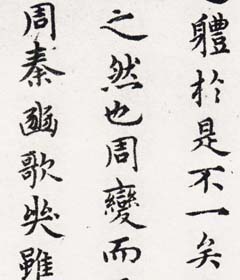 體於是不一矣
之然也周變而
周秦歌雖